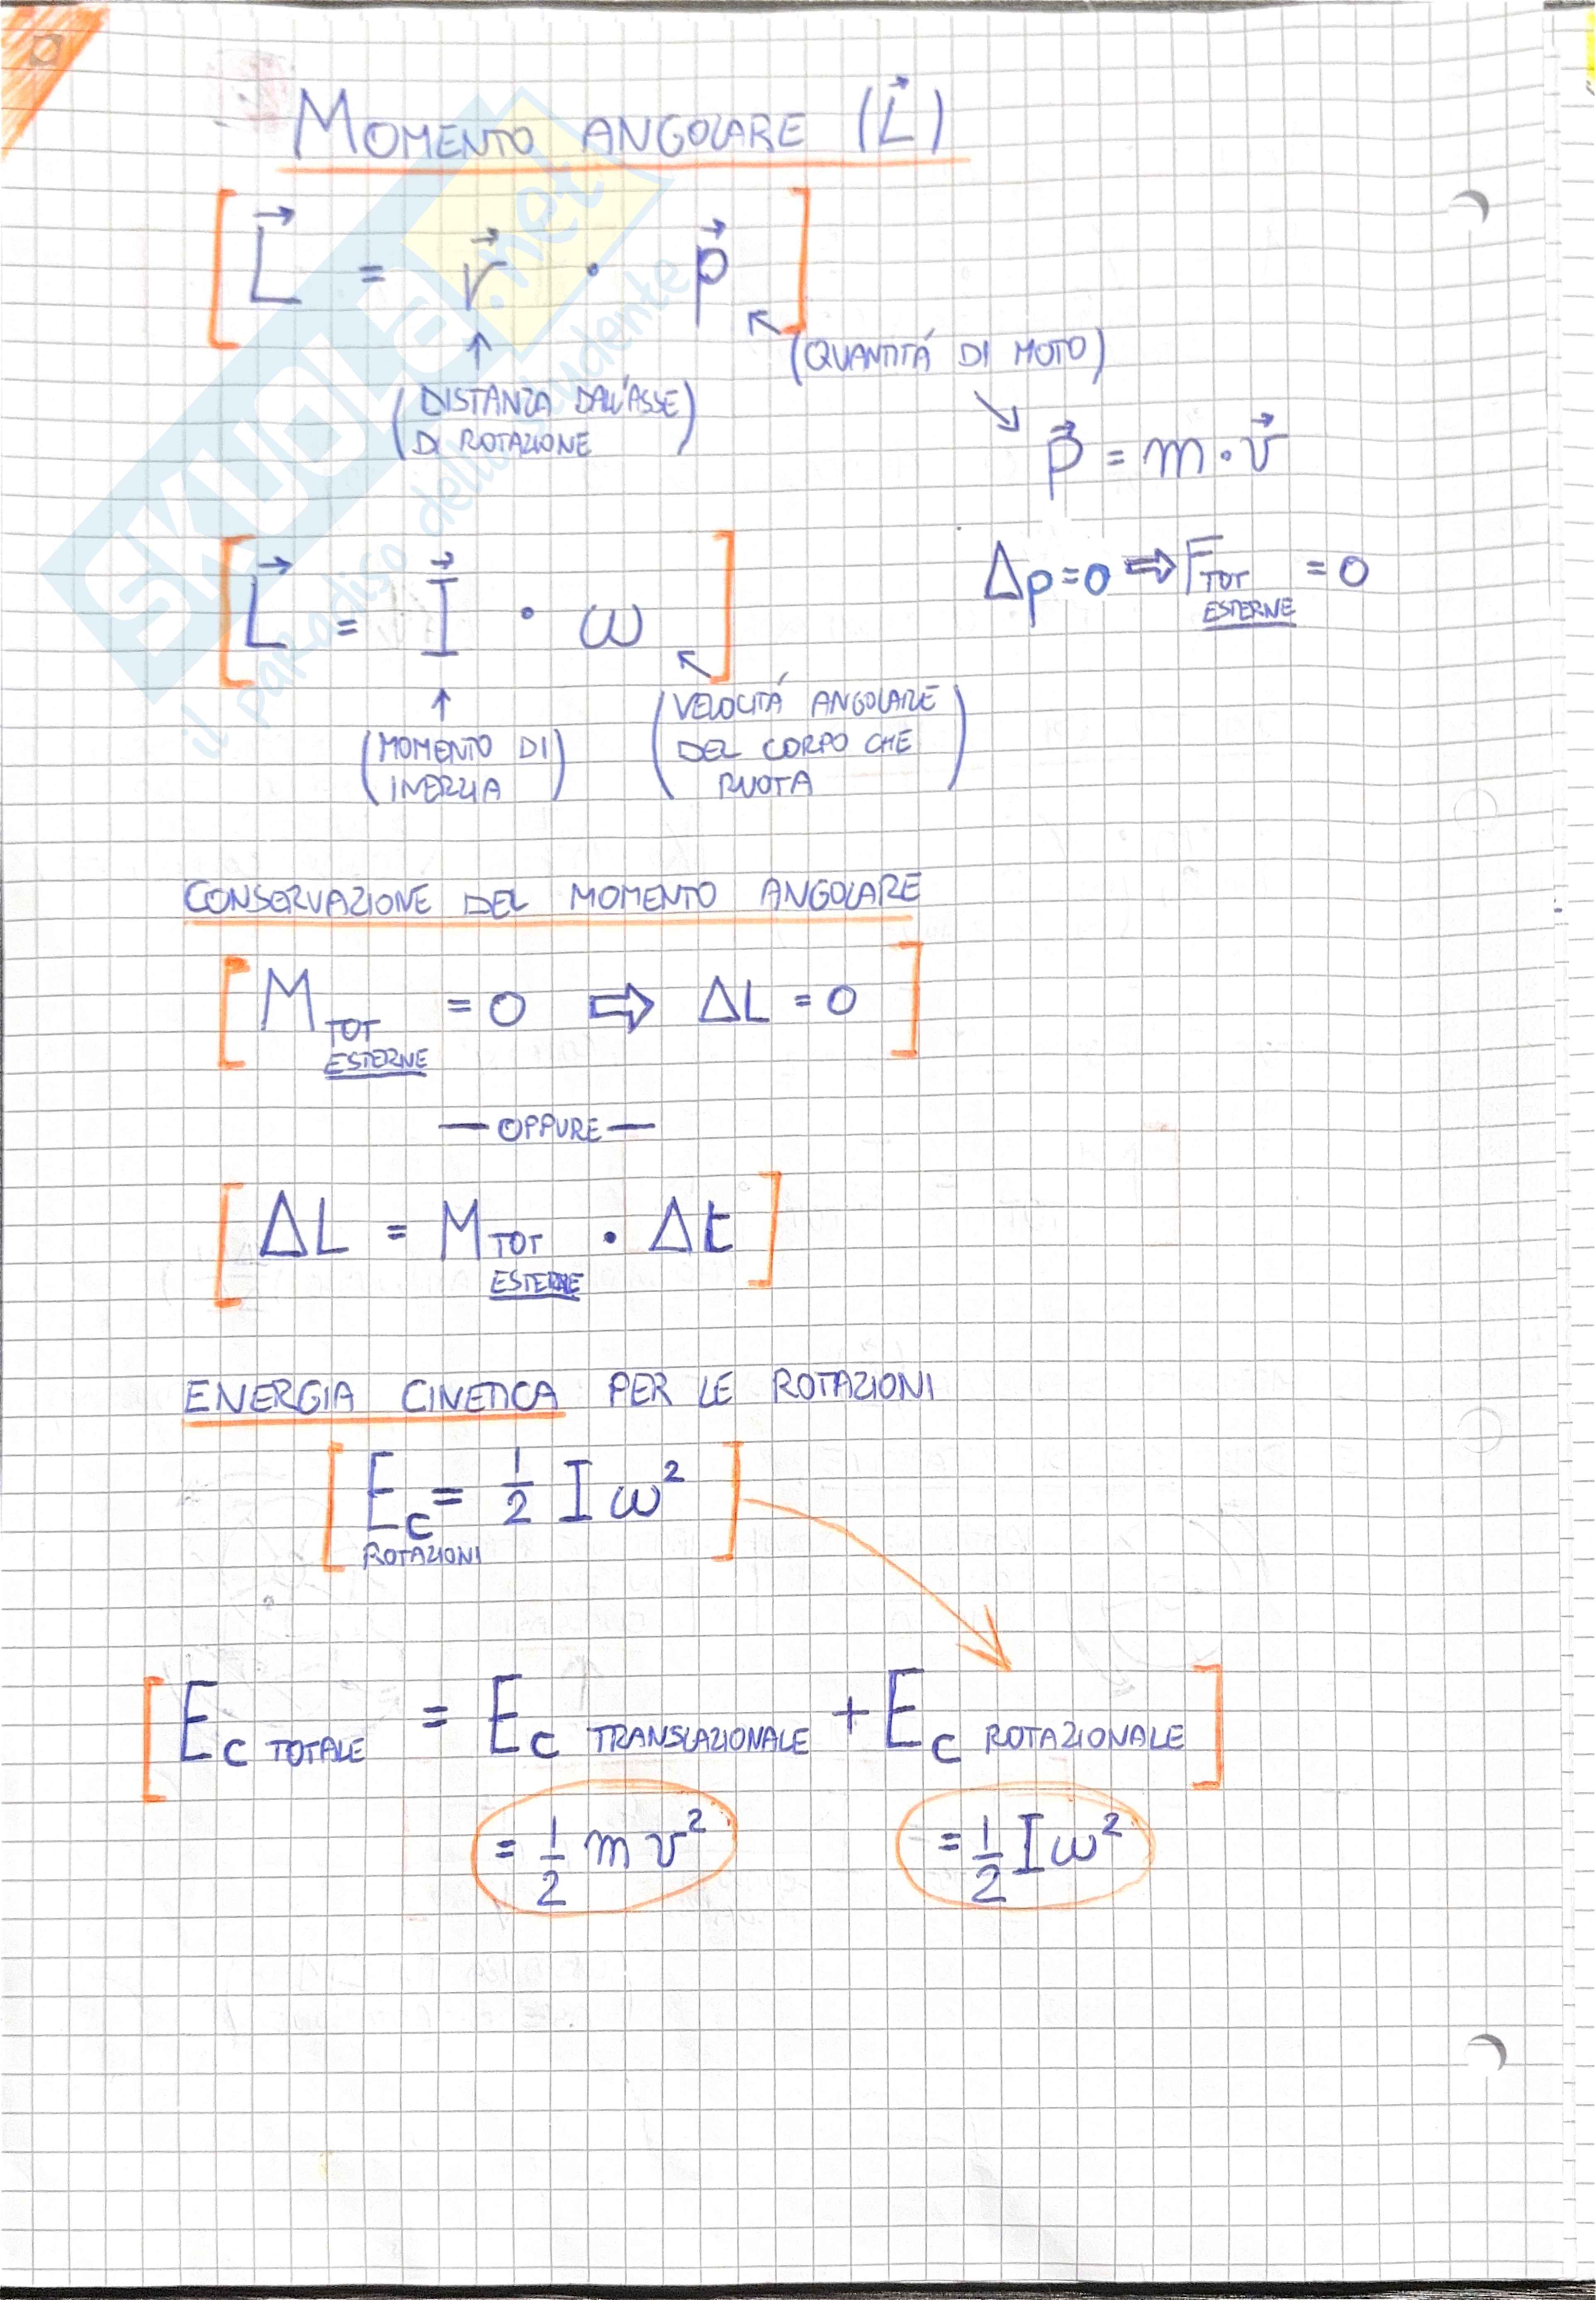 MOMENTO ANGOLARE (L⃗)
L⃗ = r⃗ · p⃗
(QUANTITÁ DI MOTO)
(DISTANZA DALL'ASSE
DI ROTAZIONE)
p⃗ = m · v⃗
Δp = 0 ⇒ F TOT ESTERNE = 0
L⃗ = I⃗ · ω
(MOMENTO DI
INERZIA)
(VELOCITÁ ANGOLARE
DEL CORPO CHE
RUOTA)
CONSERVAZIONE DEL MOMENTO ANGOLARE
M TOT ESTERNE = 0 ⇒ ΔL = 0
— OPPURE —
ΔL = M TOT ESTERNE · Δt
ENERGIA CINETICA PER LE ROTAZIONI
Ec ROTAZIONI = 1/2 I ω²
Ec TOTALE = Ec TRANSLAZIONALE + Ec ROTAZIONALE
= 1/2 m v²
= 1/2 I ω²
SKUOLA.net
il paradiso dello studente